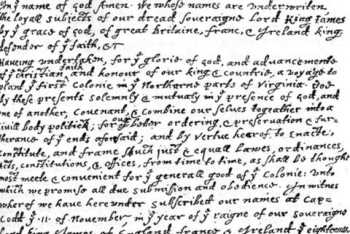 In yᵉ name of god Amen. We whose names are underwriten,
the loyall subjects of our dread soveraigne Lord King James
by yᵉ grace of god, of great britaine, franc, & Ireland king,
defender of yᵉ faith, &c
Haveing undertaken, for yᵉ glorie of god, and advancemente
of yᵉ christian faith and honour of our king & countrie, a voyage to
plant yᵉ first colonie in yᵉ Northerne parts of Virginia. Doe
by these presents solemnly & mutualy in yᵉ presence of god, and
one of another, covenant, & combine our selves togeather into a
civill body politick; for our better ordering, & preservation & fur-
therance of yᵉ ends aforesaid; and by vertue hearof to enacte,
constitute, and frame shuch just & equall lawes, ordinances,
Acts, constitutions, & offices, from time to time, as shall be thought
most meete & convenient for yᵉ generall good of yᵉ colonie: unto
which we promise all due submission and obedience. In witnes
wherof we have hereunder subscribed our names at Cap-
Codd yᵉ ·11· of November, in yᵉ year of yᵉ raigne of our soveraigne
Lord king James of England, france, & Ireland yᵉ eighteenth